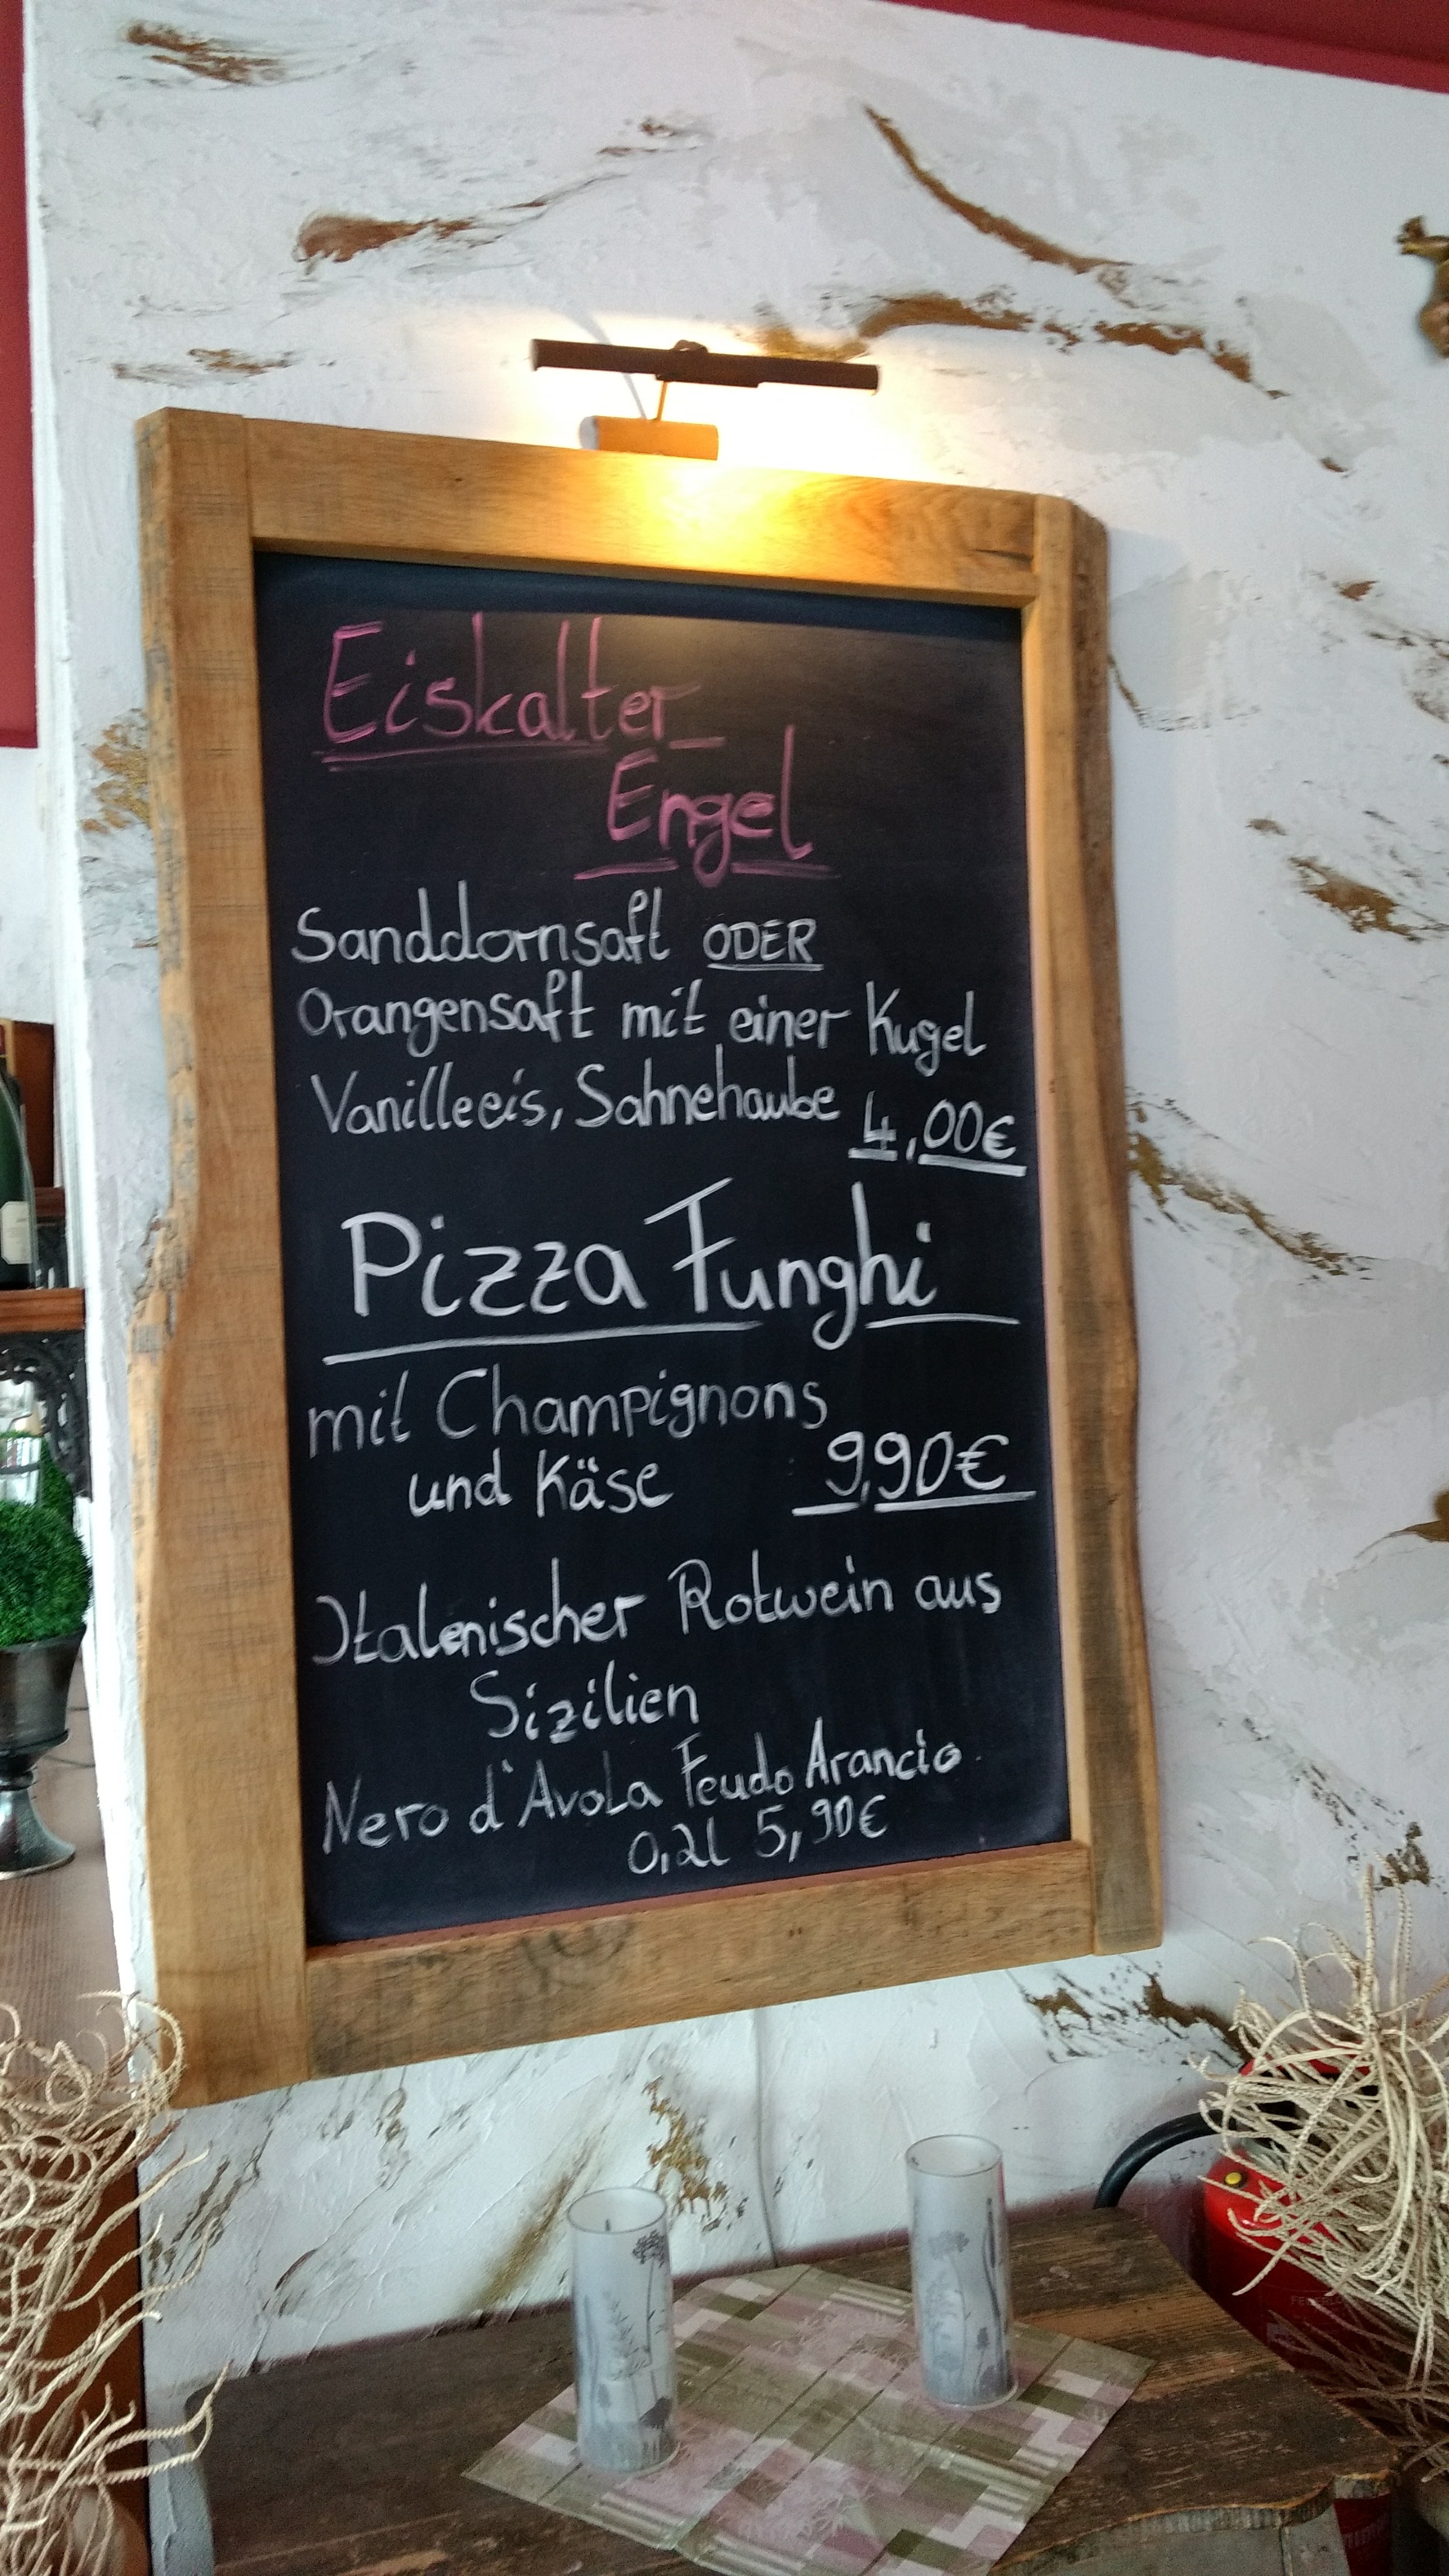 Eiskalter
Engel
Sanddornsaft ODER
Orangensaft mit einer Kugel
Vanilleeis, Sahnehaube 4,00€
Pizza Funghi
mit Champignons
und Käse 9,90€
Italenischer Rotwein aus
Sizilien
Nero d'Avola Feudo Arancio
0,2l 5,90€